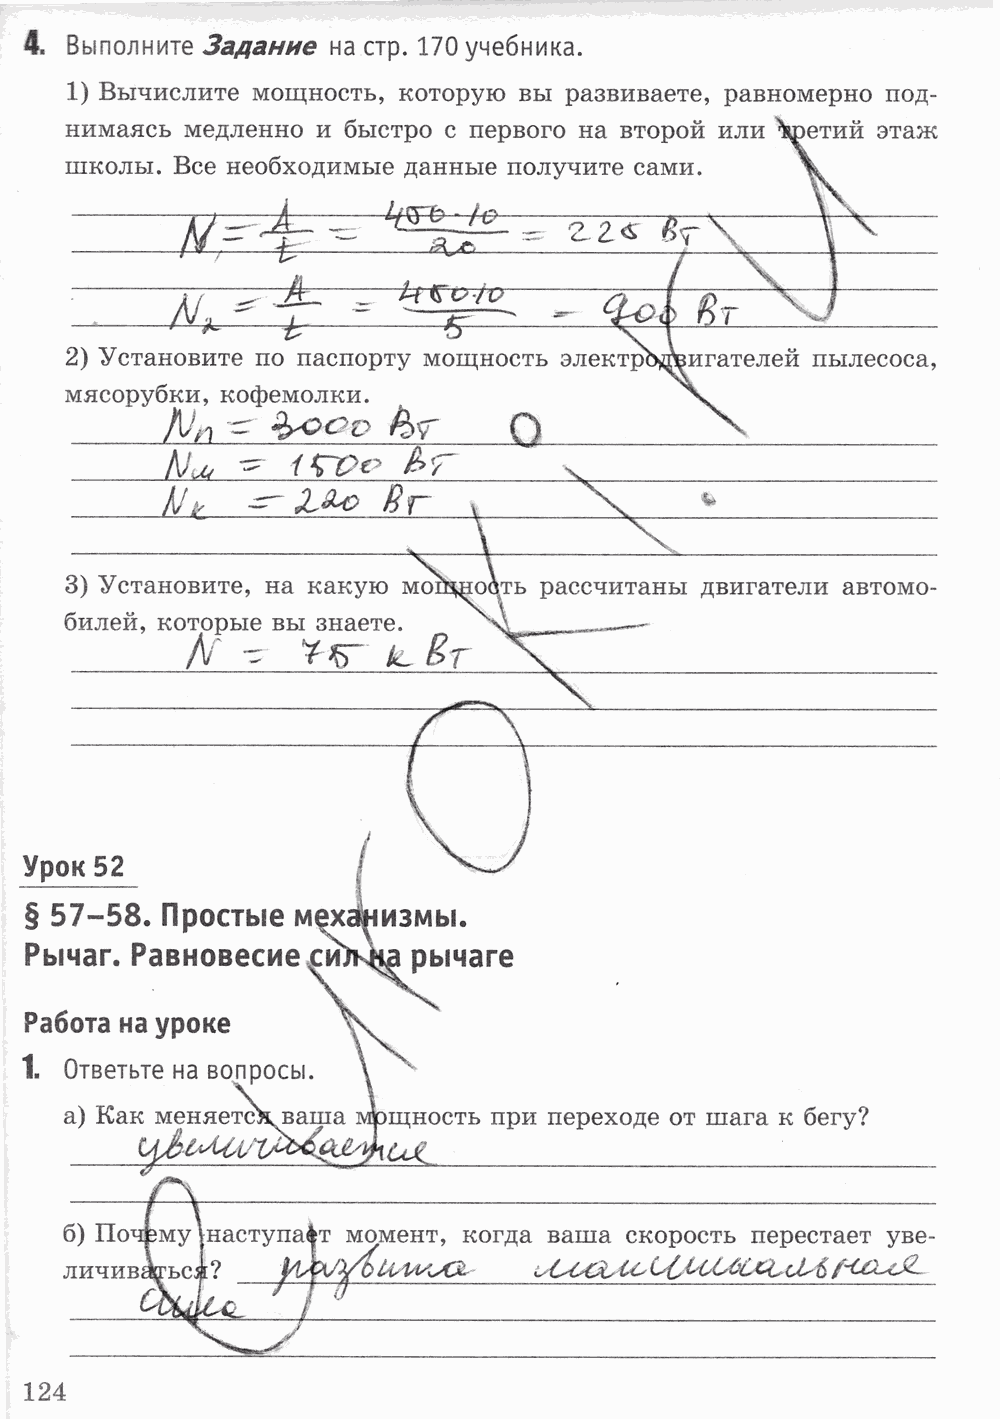 4. Выполните Задание на стр. 170 учебника.
1) Вычислите мощность, которую вы развиваете, равномерно под-
нимаясь медленно и быстро с первого на второй или третий этаж
школы. Все необходимые данные получите сами.
N = A/t = 450·10/20 = 225 Вт
N₂ = A/t = 450·10/5 = 900 Вт
2) Установите по паспорту мощность электродвигателей пылесоса,
мясорубки, кофемолки.
Nп = 3000 Вт
Nм = 1500 Вт
Nк = 220 Вт
3) Установите, на какую мощность рассчитаны двигатели автомо-
билей, которые вы знаете.
N = 75 кВт
Урок 52
§ 57–58. Простые механизмы.
Рычаг. Равновесие сил на рычаге
Работа на уроке
1. Ответьте на вопросы.
а) Как меняется ваша мощность при переходе от шага к бегу?
увеличивается
б) Почему наступает момент, когда ваша скорость перестает уве-
личиваться? развита максимальная
сила
124